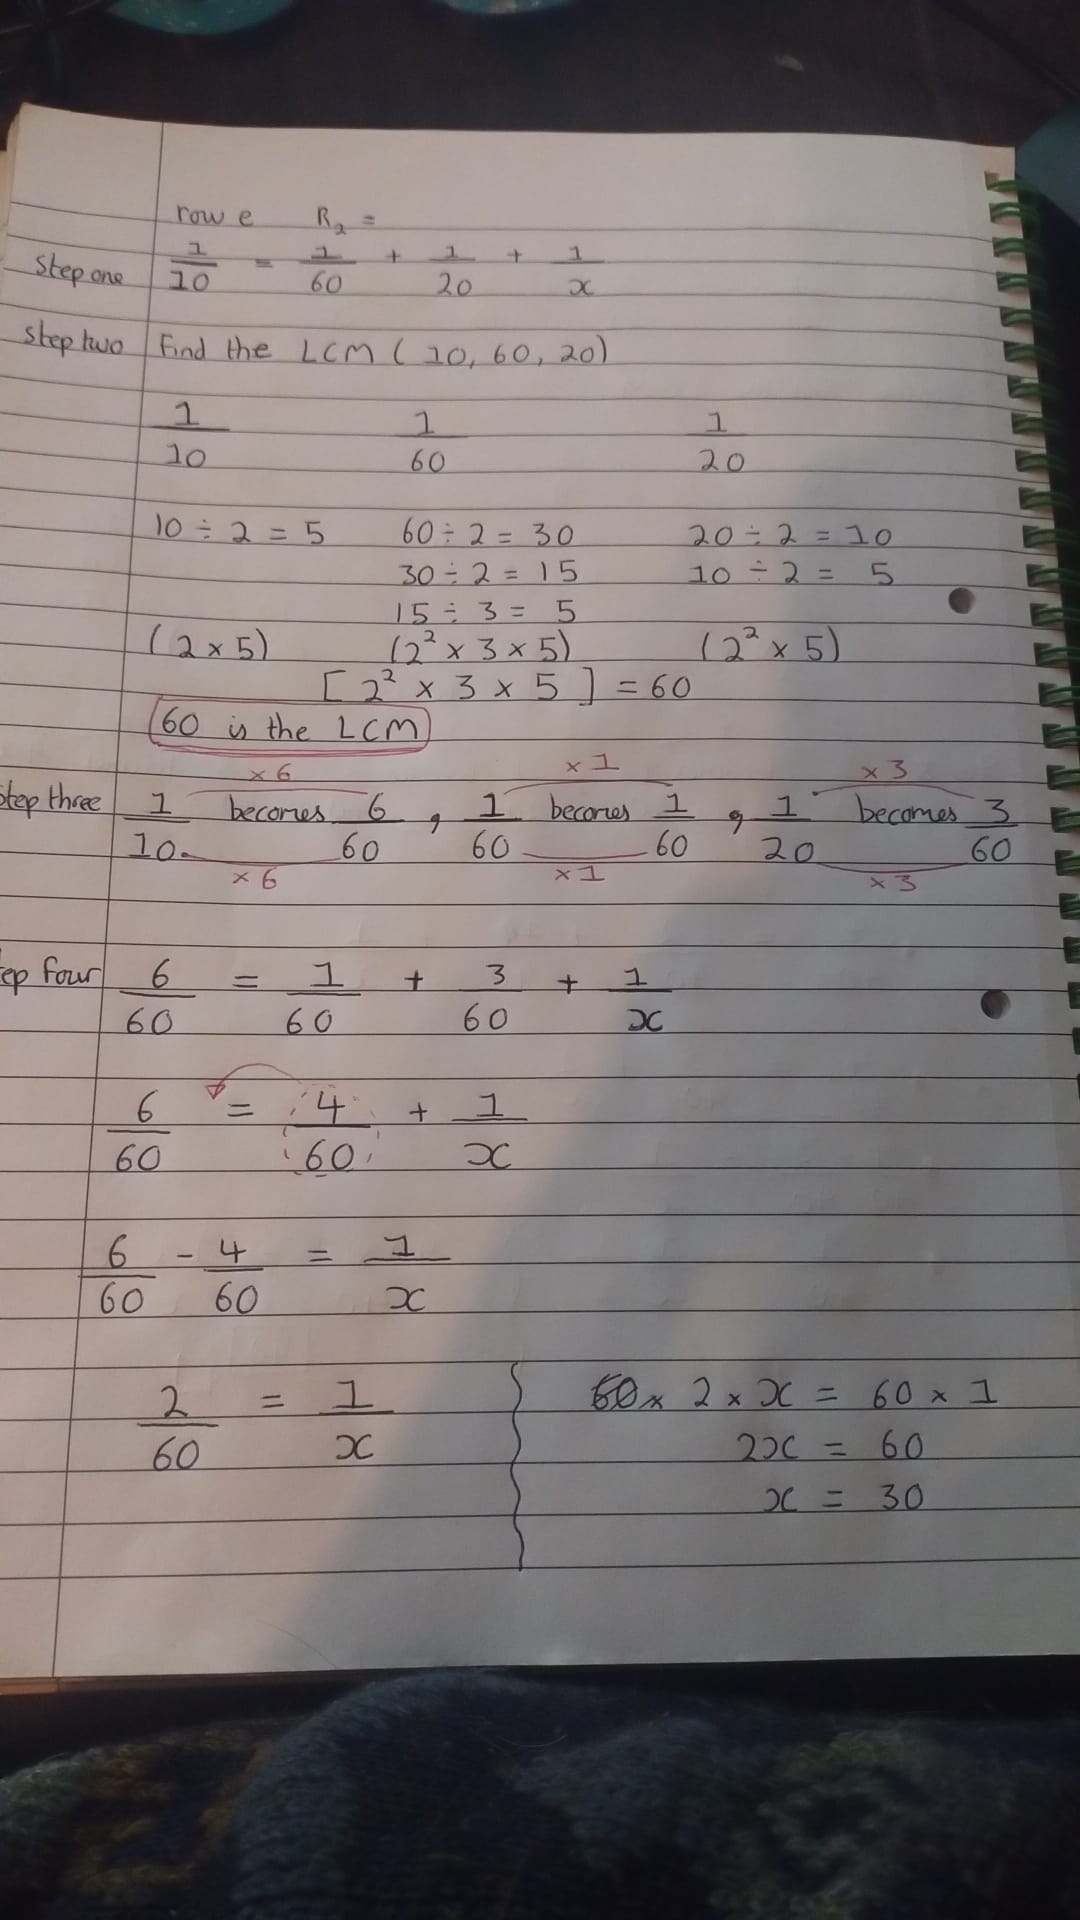 row e R₂ =
Step one 1/10 = 1/60 + 1/20 + 1/x
Step two Find the LCM (10, 60, 20)
1/10 1/60 1/20
10 ÷ 2 = 5 60 ÷ 2 = 30 20 ÷ 2 = 10
30 ÷ 2 = 15 10 ÷ 2 = 5
15 ÷ 3 = 5
(2 x 5) (2² x 3 x 5) (2² x 5)
[ 2² x 3 x 5 ] = 60
60 is the LCM
x 6 x 1 x 3
step three 1/10 becomes 6/60 , 1/60 becomes 1/60 , 1/20 becomes 3/60
x 6 x 1 x 3
ep four 6/60 = 1/60 + 3/60 + 1/x
6/60 = 4/60 + 1/x
6/60 - 4/60 = 1/x
2/60 = 1/x
60 x 2 x x = 60 x 1
2x = 60
x = 30